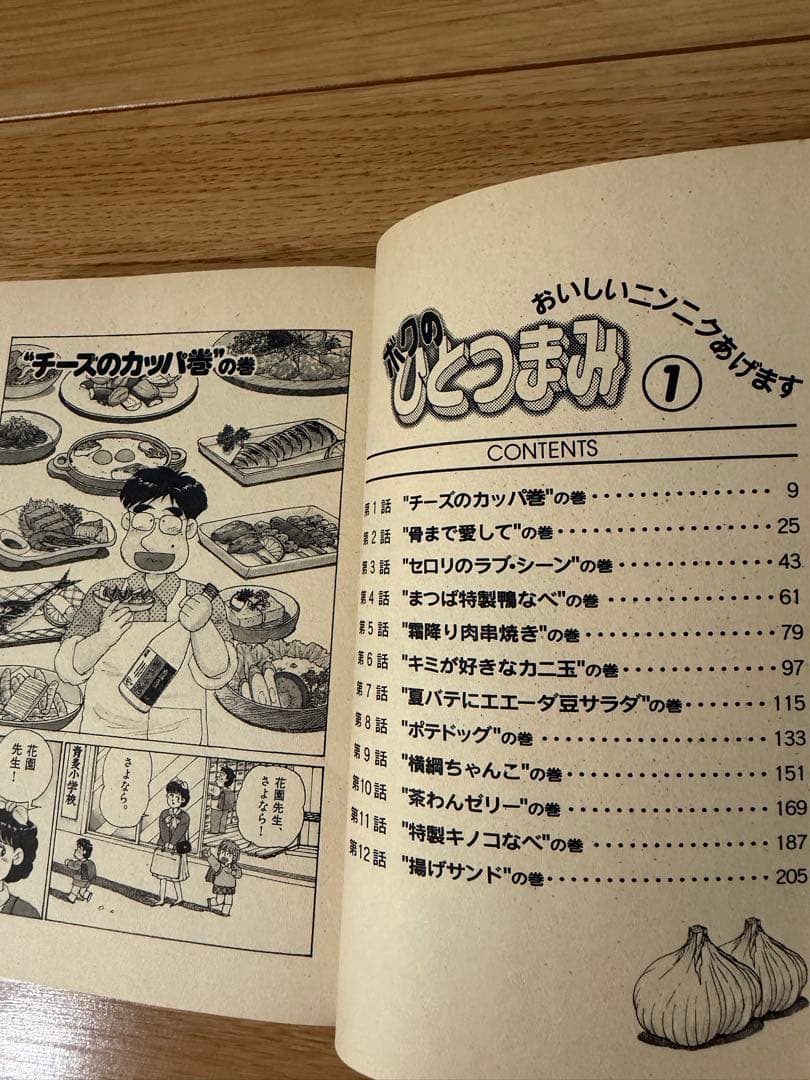 おいしいニンニクあげます
ボクの
ひとつまみ
1
CONTENTS
第1話 "チーズのカッパ巻"の巻 9
第2話 "骨まで愛して"の巻 25
第3話 "セロリのラブ・シーン"の巻 43
第4話 "まつば特製鴨なべ"の巻 61
第5話 "霜降り肉串焼き"の巻 79
第6話 "キミが好きなカニ玉"の巻 97
第7話 "夏バテにエエーダ豆サラダ"の巻 115
第8話 "ポテドッグ"の巻 133
第9話 "横綱ちゃんこ"の巻 151
第10話 "茶わんゼリー"の巻 169
第11話 "特製キノコなべ"の巻 187
第12話 "揚げサンド"の巻 205
"チーズのカッパ巻"の巻
花園先生、
さよなら!
さよなら。
青麦小学校
花園
先生!